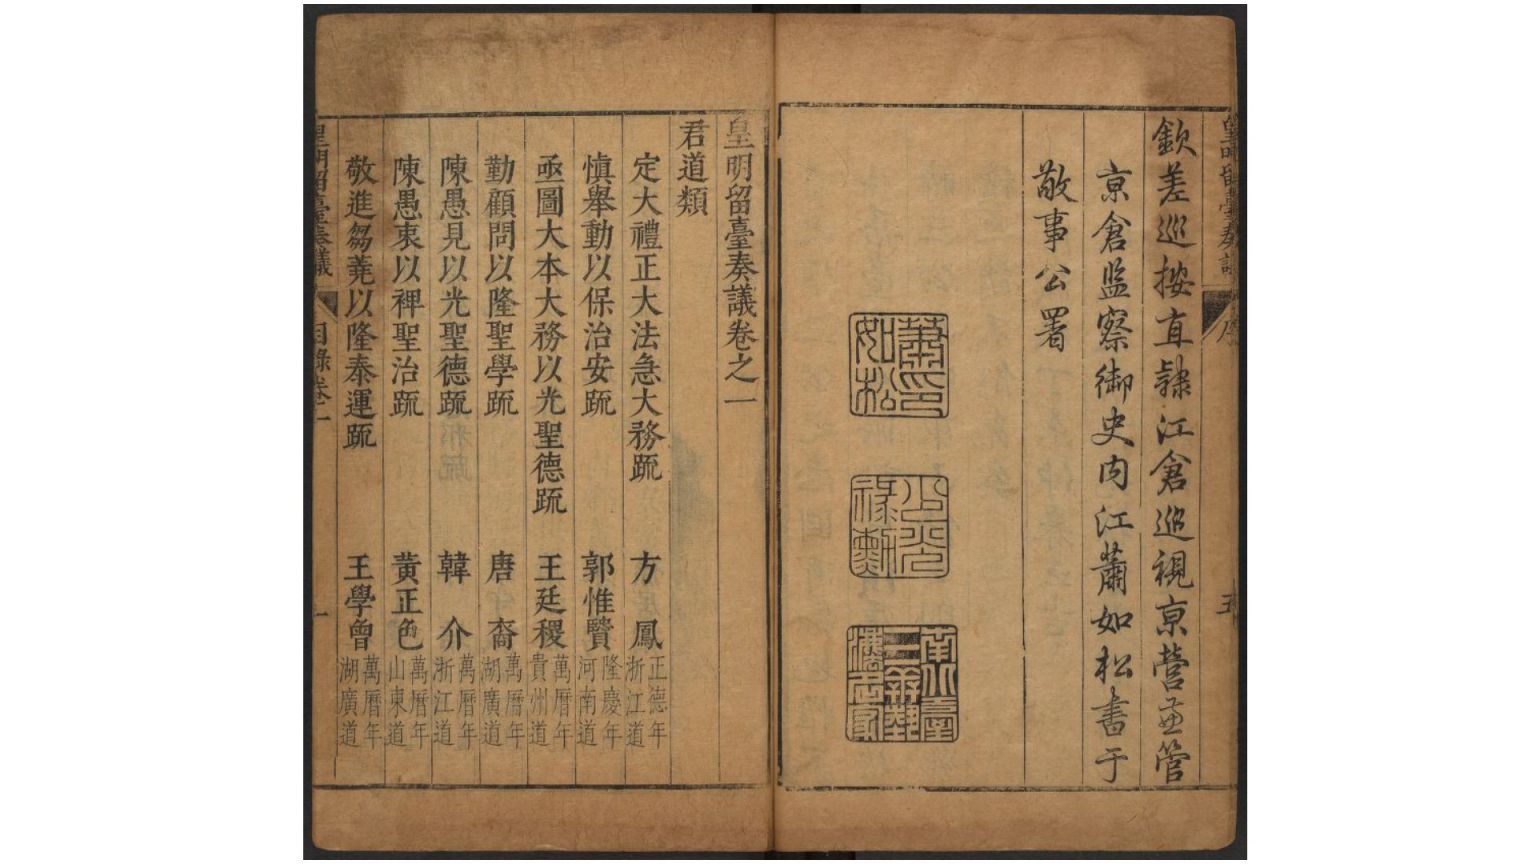 欽差巡按直隸江倉巡視京營並管
京倉監察御史內江蕭如松書于
敬事公署
蕭印如松
皇明留臺奏議卷之一
君道類
定大禮正大法急大務疏 方鳳 正德年浙江道
慎舉動以保治安疏 郭惟賢 隆慶年河南道
亟圖大本大務以光聖德疏 王廷稷 萬曆年貴州道
勤顧問以隆聖學疏 唐裔 萬曆年湖廣道
陳愚見以光聖德疏 韓介 萬曆年浙江道
陳愚衷以裨聖治疏 黃正色 萬曆年山東道
敬進芻蕘以隆泰運疏 王學曾 萬曆年湖廣道
皇明留臺奏議 目錄卷一 一